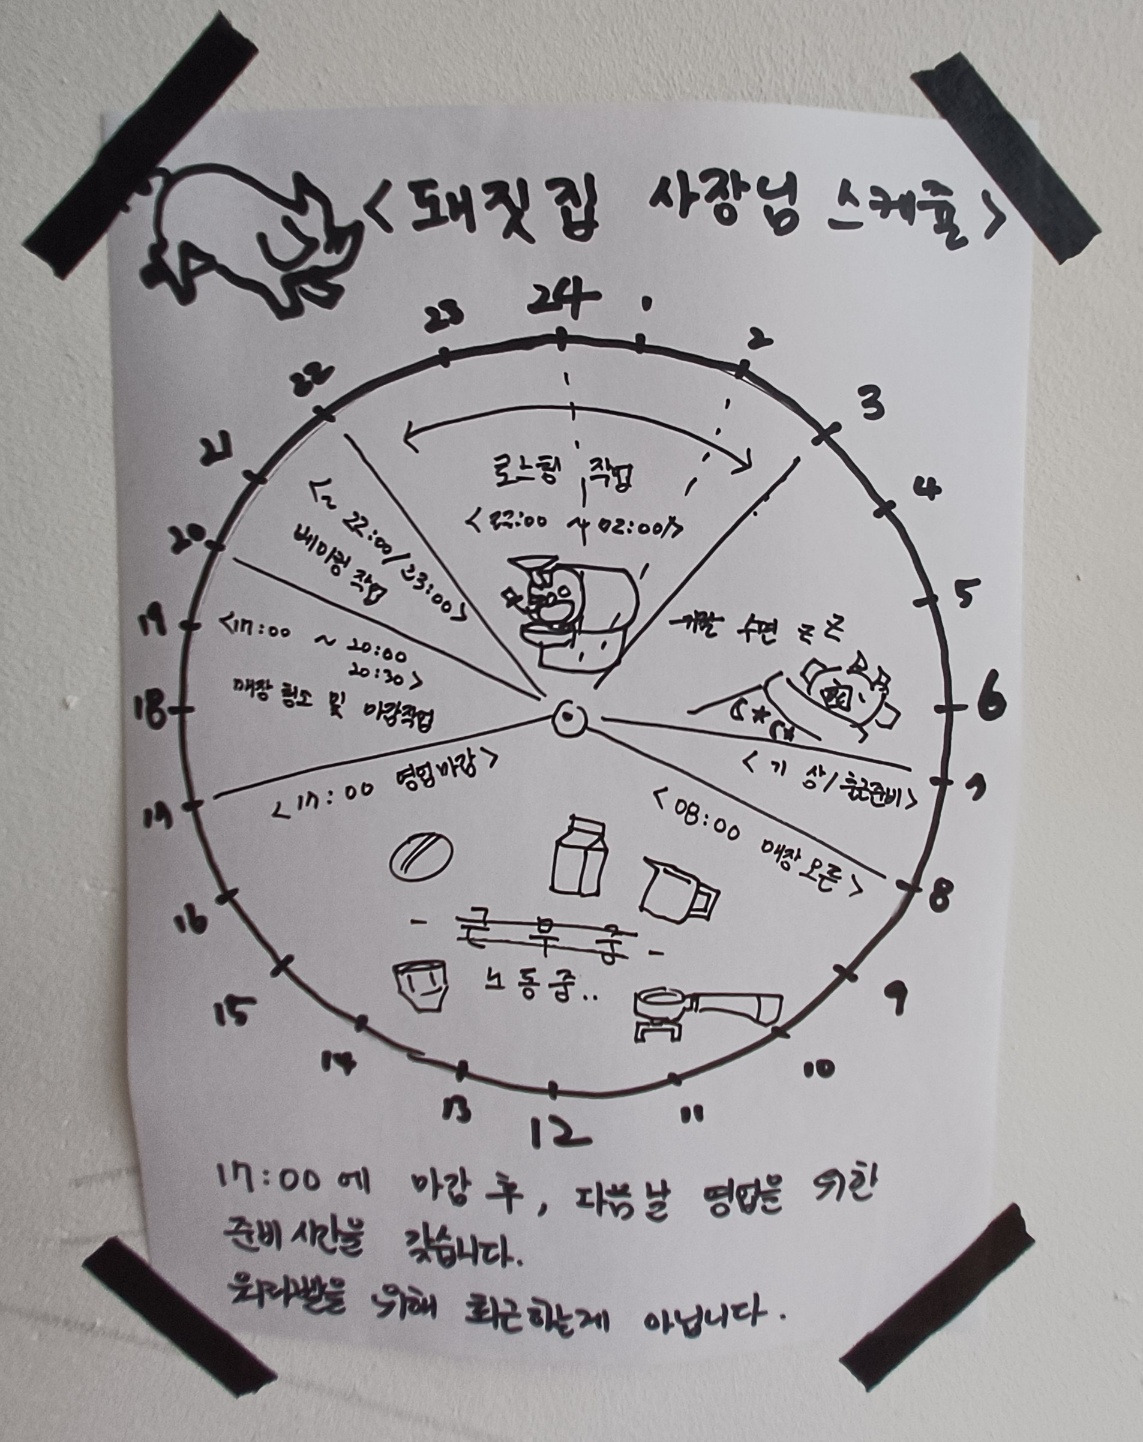 <돼짓집 사장님 스케쥴>
24
1
2
3
4
5
6
7
8
9
10
11
12
13
14
15
16
17
18
19
20
21
22
23
로스팅 작업
<22:00 ~ 02:00>
수면 z z
<기상/출근준비>
<08:00 매장오픈>
- 근무중 -
노동중..
<17:00 영업마감>
<17:00 ~ 20:00
20:30>
매장 청소 및 마감작업
<~ 22:00/23:00>
베이킹 작업
17:00에 마감 후, 다음날 영업을 위한
준비시간을 갖습니다.
워라밸을 위해 퇴근하는게 아닙니다.